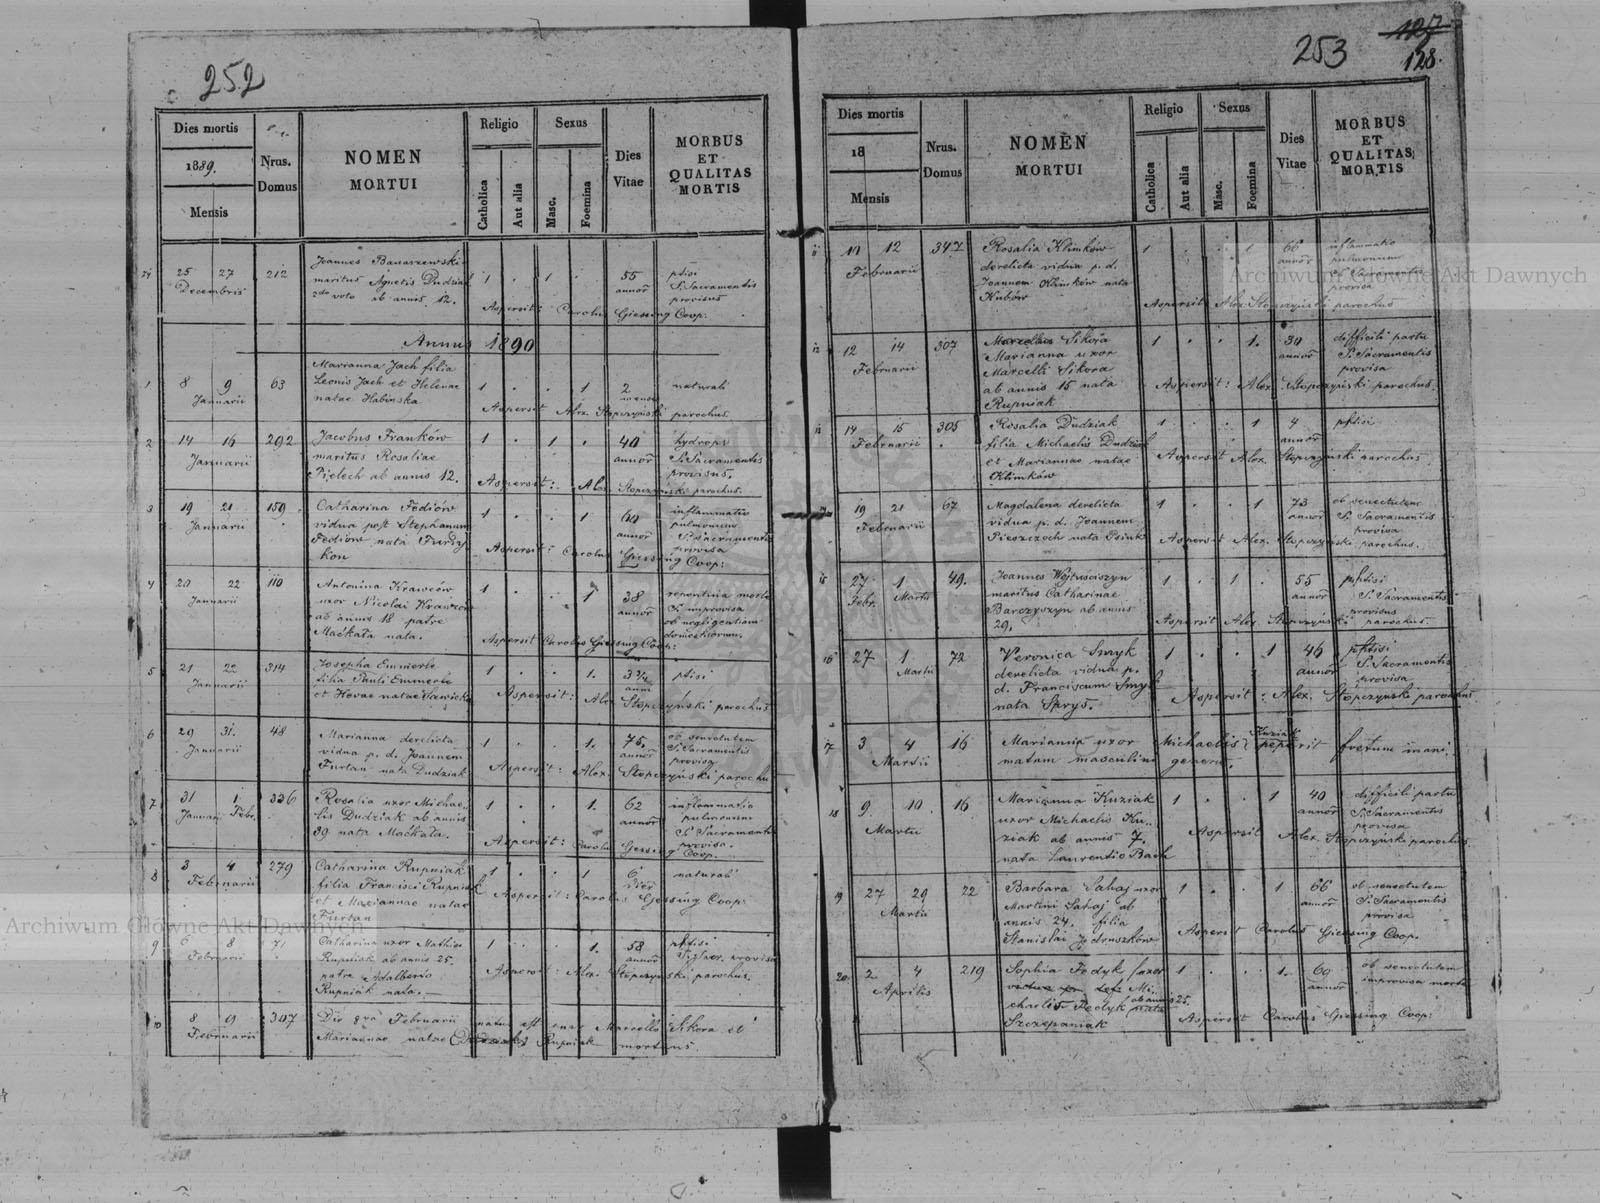 252
Dies mortis
1889.
Mensis
Nrus.
Domus
NOMEN
MORTUI
Religio
Catholica
Aut alia
Sexus
Masc.
Foemina
Dies
Vitae
MORBUS
ET
QUALITAS
MORTIS
24 25 27 212
Decembris
Joannes Banaszewski
maritus Agnetis Dudziak
2do voto ab annis 12.
1 . 1 . 55
annor
ptisi
S. Sacramentis
provisus
Aspersit: Carolus Giessing Coop.
Annus 1890
1 8 9 63
Januarii
Marianna Jach filia
Leonis Jach et Helenae
natae Habinska
1 . . 1 2
naturali
Aspersit Alex. Stopczyński parochus.
2 14 16 292
Januarii
Jacobus Franków
maritus Rosaliae
Pielech ab annis 12.
1 . 1 . 40
annor
hydrops
S. Sacramentis
provisus.
Aspersit: Alex. Stopczyński parochus.
3 19 21 159
Januarii
Catharina Fediów
vidua post Stephanum
Fediów nata Furdy
kon
1 . . 1 60
annor
inflammatio
pulmonum
S. Sacramentis
provisa
Aspersit: Carolus Giessing Coop:
4 20 22 110
Januarii
Antonina Krawców
uxor Nicolai Krawców
ab annis 18 patre
Maćkała nata.
1 . . 1 38
annor
repentina morte
S. improvisa
ob negligentiam
domesticorum.
Aspersit Carolus Giessing Coop:
5 21 22 314
Januarii
Josepha Emmerle
filia Pauli Emmerle
et Hevae natae Sawicka
1 . . 1. 3 3/4
anni
ptisi
Aspersit: Alex. Stopczyński parochus
6 29 31. 48
Januarii
Marianna derelicta
vidua p. d. Joannem
Furtan nata Dudziak
1 . . 1. 75.
annor
ob senectutem
S. Sacramentis
provisa
Aspersit: Alex. Stopczyński parochus
7 31 1. 336
Januar. Febr.
Rosalia uxor Michae-
lis Dudziak ab annis
39 nata Maćkała.
1 . . 1. 62
annor
inflammatio
pulmonum
S. Sacramentis
provisa.
Aspersit: Carolus Giessing Coop.
8 3 4 279
Februarii
Catharina Rupniak
filia Francisci Rupniak
et Mariannae natae
Furtan
1 . . 1 6
dier
naturali
Aspersit: Carolus Giessing Coop:
9 6 8 71
Februarii
Catharina uxor Mathiae
Rupniak ab annis 25.
patre Adalberto
Rupniak nata.
1 . . 1. 58
annor
ptisi
S. Sacr. provisa
Aspersit: Alex. Stopczyński parochus.
10 8 9 307
Februarii
Die 8va Februarii natus est Marcello Sikora et
Mariannae natae Rupniak mortuus.
253
127
128.
Dies mortis
18
Mensis
Nrus.
Domus
NOMEN
MORTUI
Religio
Catholica
Aut alia
Sexus
Masc.
Foemina
Dies
Vitae
MORBUS
ET
QUALITAS
MORTIS
11 11 12 347
Februarii
Rosalia Klimków
derelicta vidua p. d.
Joannem Klimków nata
Kubów
1 . . 1 66
annor
inflammatio
pulmonum
S. Sacramentis
provisa
Aspersit: Alex. Stopczyński parochus
12 12 14 307
Februarii
Sikora
Marianna uxor
Marcelli Sikora
ab annis 15 nata
Rupniak
1 . . 1. 39
annor
difficili partu
S. Sacramentis
provisa
Aspersit: Alex. Stopczyński parochus.
13 14 15 305
Februarii
Rosalia Dudziak
filia Michaelis Dudziak
et Mariannae natae
Klimków
1 . . 1 4
annor
phtisi
Aspersit Alex. Stopczyński parochus.
19 21 67
Februarii
Magdalena derelicta
vidua p. d. Joannem
Pieszczoch nata Psiuk
1 . . 1 73
annor
ob senectutem
S. Sacramentis
provisa
Aspersit Alex. Stopczyński parochus.
15 27 1 49.
Febr. Martii
Joannes Wojtusciszyn
maritus Catharinae
Barczyszyn ab annis
29.
1 . 1 . 55
annor
phtisi
S. Sacramentis
provisus
Aspersit Alex. Stopczyński parochus.
16 27 1 72
Martii
Veronica Smyk
derelicta vidua p.
d. Franciscum Smyk
nata Sprys.
1 . . 1 46
annor
phtisi
S. Sacramentis
provisa
Aspersit: Alex. Stopczyński parochus
17 3 4 16
Martii
Marianna uxor Michaelis Kuziak peperit foetum inani-
matum masculini generis.
18 9 10 16
Martii
Marianna Kuziak
uxor Michaelis Ku-
ziak ab annis 7.
nata Laurentio Bach
1 . . 1 40
annor
difficili partu
S. Sacramentis
provisa
Aspersit Alex. Stopczyński parochus.
19 27 29 22
Martii
Barbara Sahaj uxor
Martini Sahaj ab
annis 24. filia
Stanislai Jarmuszków
1 . . 1 66
annor
ob senectutem
S. Sacramentis
provisa
Aspersit Carolus Giessing Coop.
20. 2 4 219
Aprilis
Sophia Fedyk uxor
Mi-
chaelis Fedyk ab annis 25. nata
Szczepaniak
1 . . 1. 60
annor
ob senectutem
improvisa morte
Aspersit Carolus Giessing Coop:
Archiwum Główne Akt Dawnych
Archiwum Główne Akt Dawnych